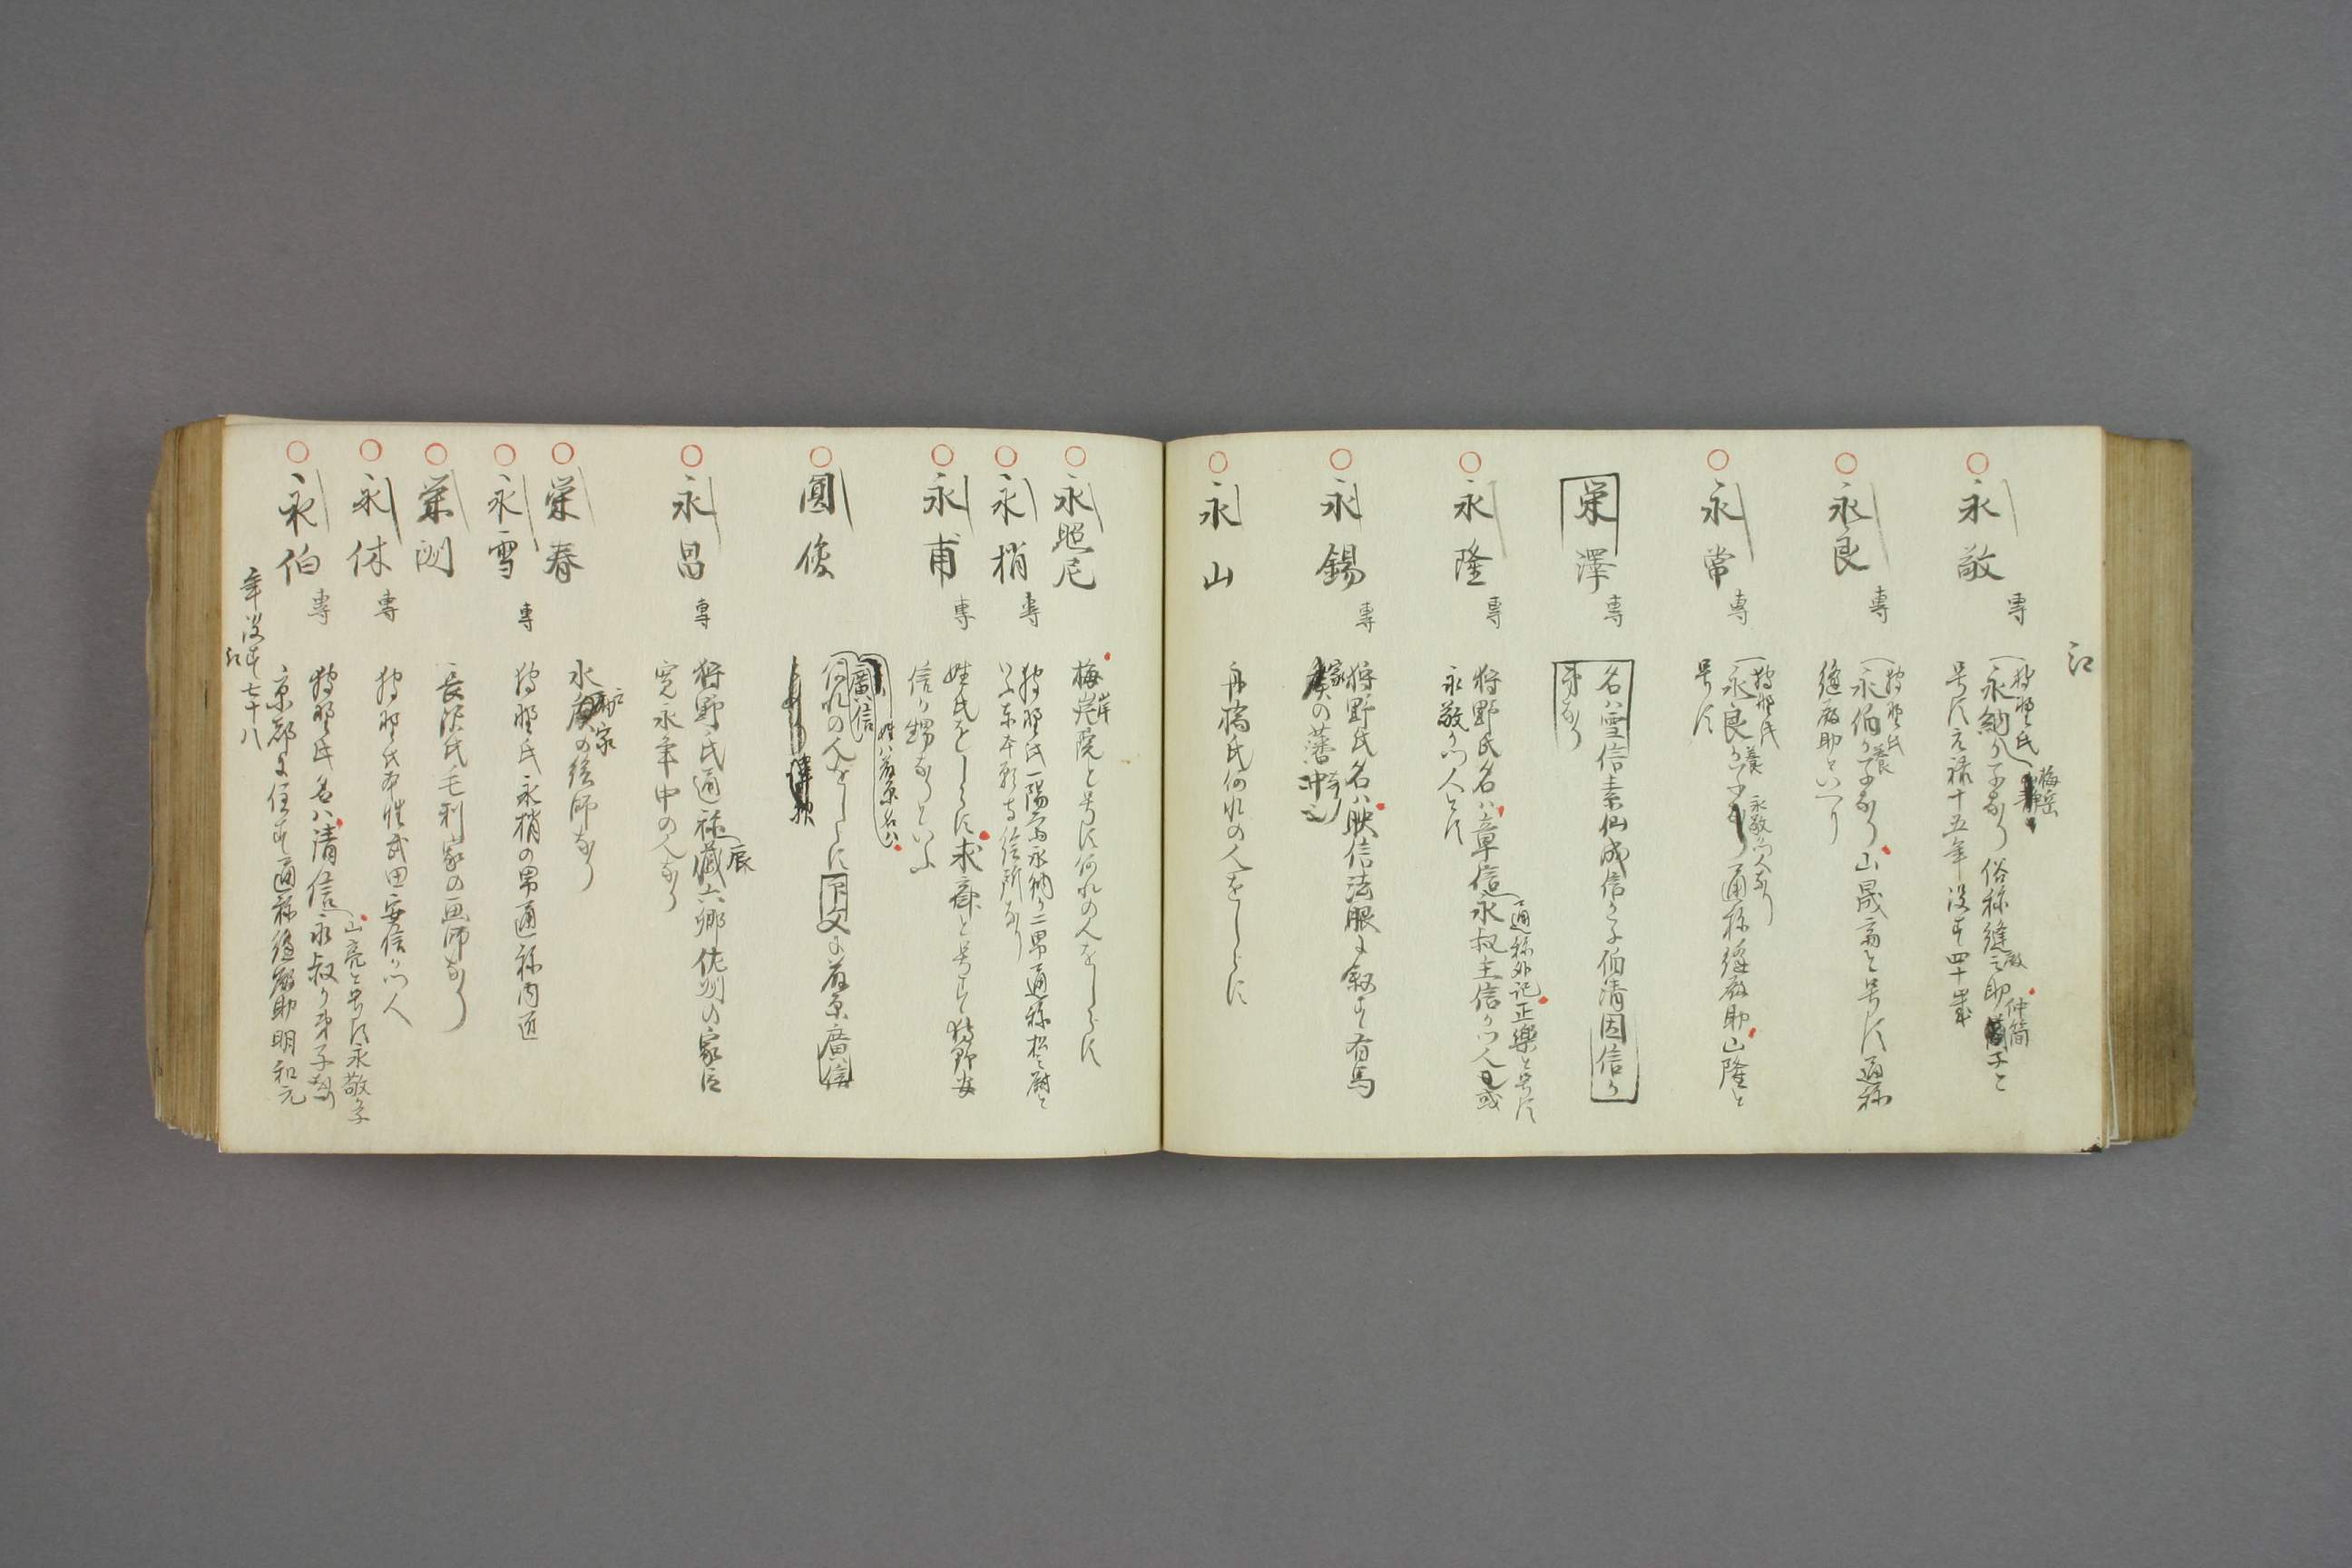 江
永敬 専
狩野氏 梅岳
永納ノ子なり 俗称縫之助 仲簡 子と
号す元禄十五年没す四十歳
永良 専
狩野氏
永伯ノ養子なり山晟斎と号す通称
縫殿助といへり
永常 専
狩野氏
永良ノ養子 通称縫殿助山隆と
永敬ノ門人なり
号す
栄澤 専
名ハ雪信素仙成信ノ子伯清因信ノ
弟なり
永隆 専
通称外記正樂と号す
狩野氏名ハ章信永叔主信ノ門人或
永敬ノ門人とす
永錫 専
狩野氏名ハ映信法眼に叙す有馬
家の藩中
永山
舟橋氏何れの人をしらす
永照尼
梅岸院と号す何れの人をしらす
永梢 専
狩野氏一陽斎永納ノ二男通称松之尉と
いふ東本願寺絵所なり
永甫 専
姓氏をしらす求齋と号す狩野安
信ノ甥なりといふ
圓俊
廣信 姓ハ藤原名ハ
何れの人をしらす下文の藤原廣信
永昌 専
狩野氏通称藏六郷佐州の家臣
寛永年中の人なり
栄春
水戸家の絵師なり
永雪 専
狩野氏永梢の男通称内匠
栄渕
長沢氏毛利家の画師なり
永休 専
狩野氏本姓武田安信ノ門人
永伯 専
山亮と号す永敬ノ子
狩野氏名ハ清信永叔ノ弟子なり
京都に住す通称縫殿助明和元
年没す七十八
江